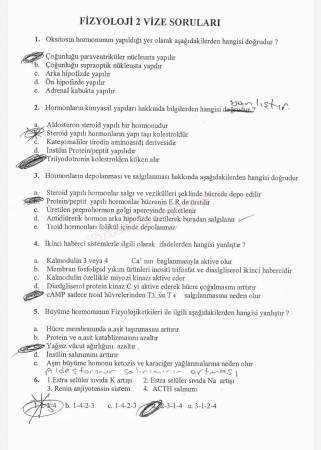 FİZYOLOJİ 2 VİZE SORULARI
1. Oksitosin hormonunun yapıldığı yer olarak aşağıdakilerden hangisi doğrudur ?
Çoğunluğu paraventriküler nücleusta yapılır
b. Çoğunluğu supraoptik nükleusta yapılır
c. Arka hipofizde yapılır
d. Ön hipofizde yapılır
e. Adrenal kabukta yapılır
yanlıştır.
2. Hormonların kimyasal yapıları hakkında bilgilerden hangisi doğrudur?
a. Aldosteron steroid yapılı bir hormonudur
Steroid yapılı hormonların yapı taşı kolestroldür
c. Kateşomaliler tirodin aminosidi derivesidir
d. İnsülin Protein/peptit yapılıdır
Triiyodotronin kolestrolden köken alır
3. Hormonların depolanması ve salgılanması hakkında aşağıdakilerden hangisi doğrudur
a. Steroid yapılı hormonlar salgı ve vezikülleri şeklinde hücrede depo edilir
Protein/peptit yapılı hormonlar hücrenin E.R de üretilir
c. Üretilen preprohormon golgi apereyinde paketlenir
d. Antidiüretik hormon arka hipofizde üretilerek buradan salgılanır
e. Troid hormonları folikül içinde depolanmaz
4. Ikinci haberci sistemlerle ilgili olarak ifadelerden hangisi yanlıştır ?
a. Kalmodulin 3 veya 4 Ca⁺ nın baglanmasıyla aktive olur
b. Membran fosfolipid yıkım ürünleri inositi trifosfat ve diaslgliserol ikinci habercidir
c. Kalmodulin özellikle miyozi kinazı aktive eder
d. Diaslgliserol protein kinaz C yi aktive ederek hücre çoğalmasını arttırır
cAMP sadece troid hüvrelerinden T3 ve T4 salgılanmasına neden olur
5. Büyüme hormonunun Fizyolojiketkileri ile ilgili aşağıdakilerden hangisi yanlıştır ?
a. Hücre membranıda a.asit taşınmasını arttırır
b. Protein ve a.asit katablizmasını azaltır
Yağsız vücut ağırlığını azaltır .
d. İnsülin salınımını arttırır
e. Aşırı büyüme homonu ketozis ve karaciğer yağlanmalarına neden olur
Aldosteronun salınımının artması
6. 1.Estra selüler sıvıda K artışı 2. Estra selüler sıvıda Na artışı
3. Renin anjiyotensin sistem 4. ACTH salınımı
1-2-3-4 b. 1-4-2-3 c. 1-4-2-3 2-3-1-4 e. 3-1-2-4